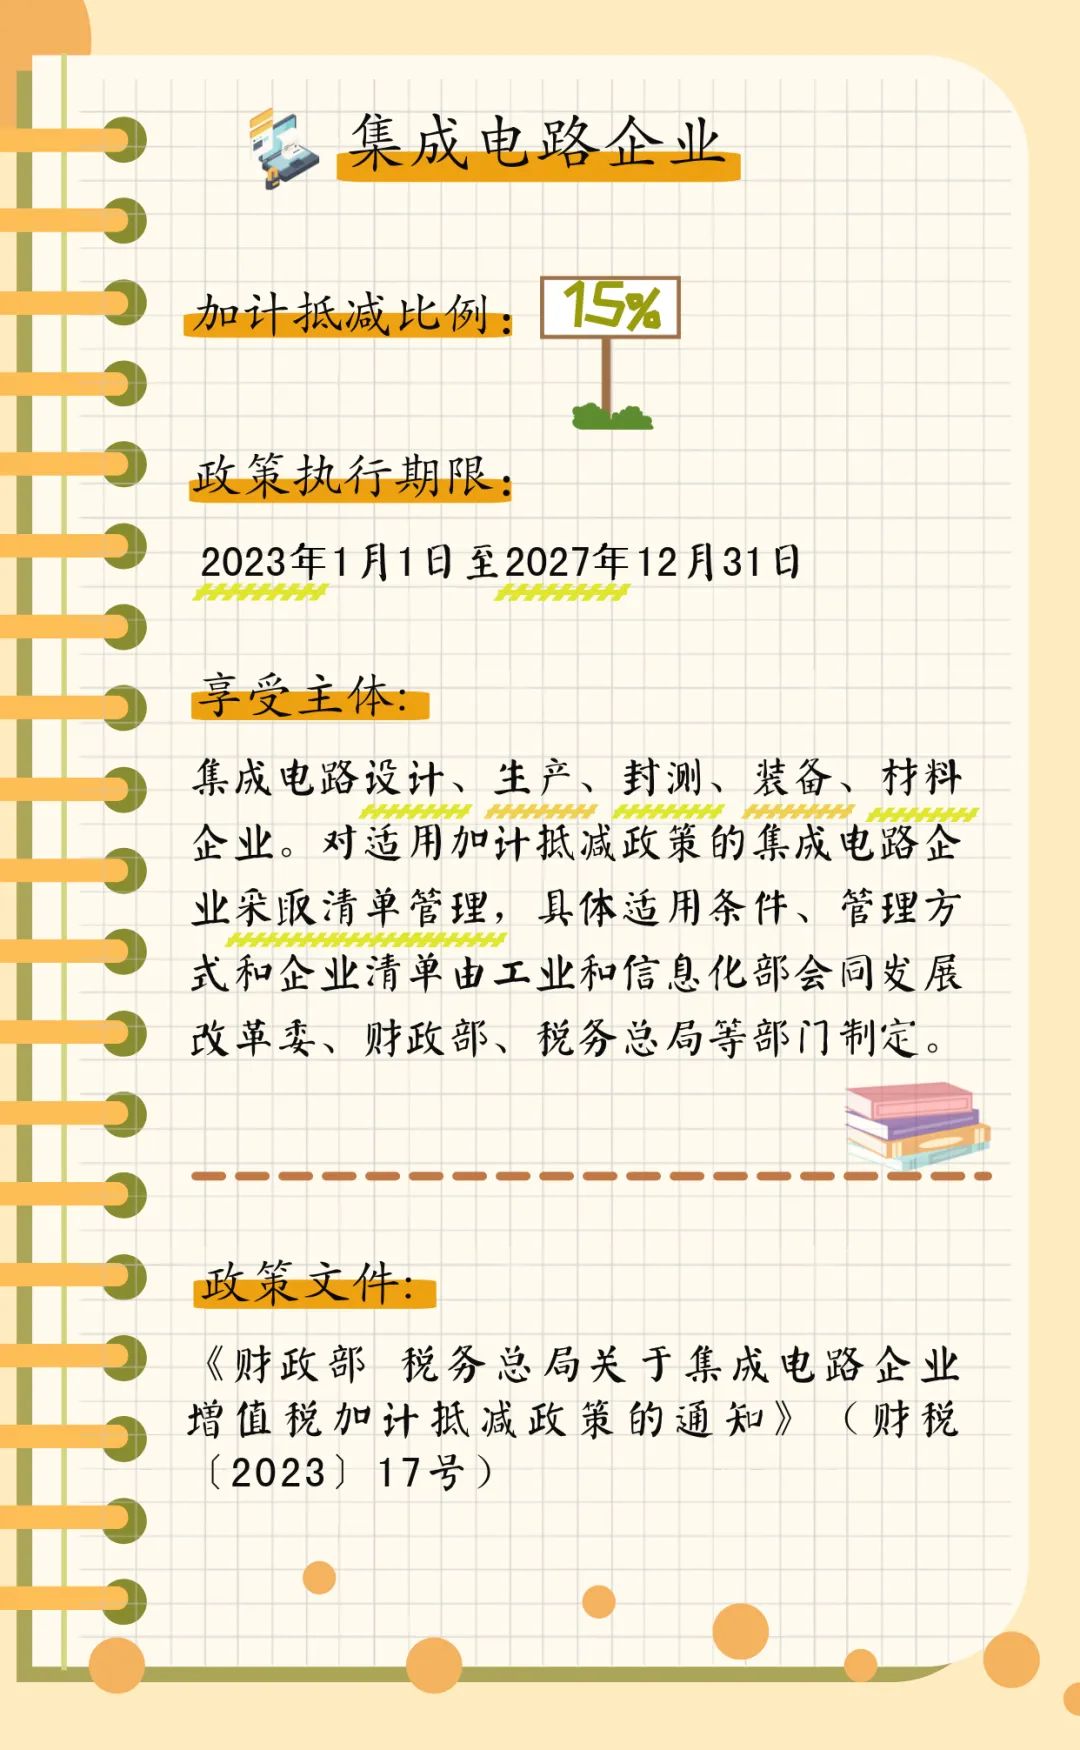 集成电路企业
加计抵减比例：
15%
政策执行期限：
2023年1月1日至2027年12月31日
享受主体：
集成电路设计、生产、封测、装备、材料
企业。对适用加计抵减政策的集成电路企
业采取清单管理，具体适用条件、管理方
式和企业清单由工业和信息化部会同发展
改革委、财政部、税务总局等部门制定。
政策文件：
《财政部 税务总局关于集成电路企业
增值税加计抵减政策的通知》（财税
〔2023〕17号）